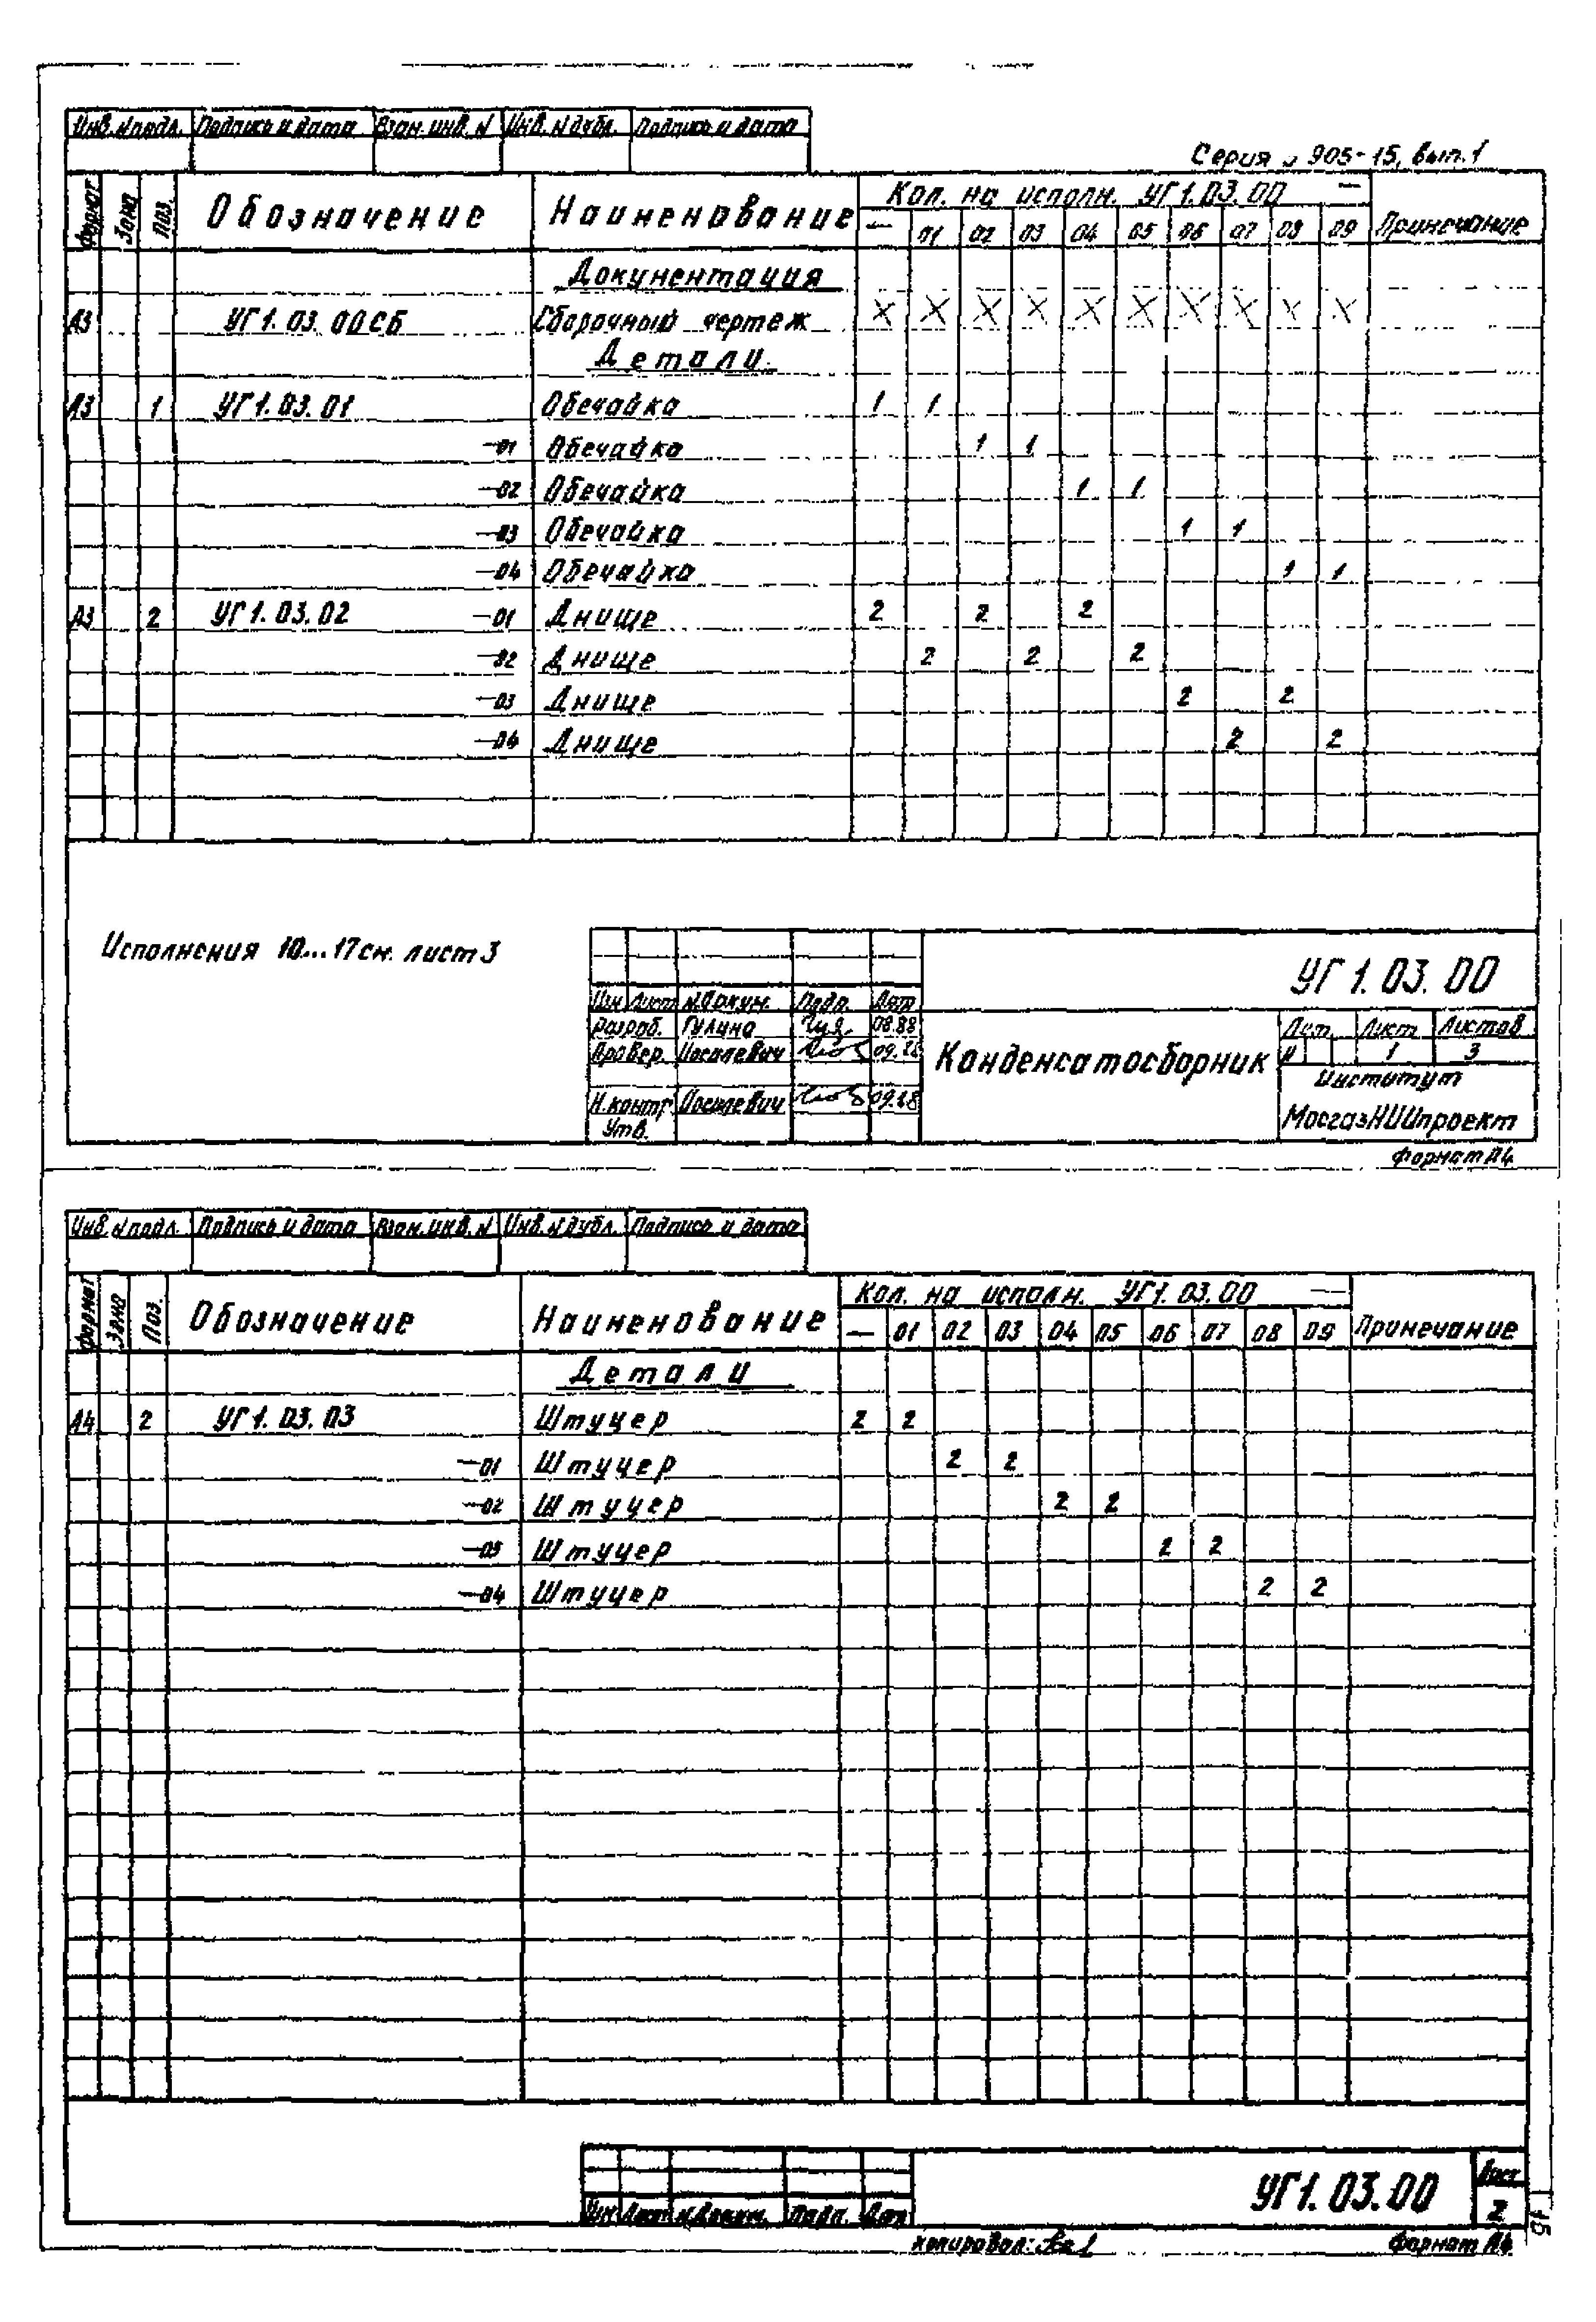 Инв. N подл. Подпись и дата Взам. инв. N Инв. N дубл. Подпись и дата
Серия 905-15, вып. 1
Формат Зона Поз. Обозначение Наименование Кол. на исполн. УГ1.03.00 — Примечание
— 01 02 03 04 05 06 07 08 09
Документация
А3 УГ1.03.00СБ Сборочный чертеж X X X X X X X X X X
Детали
А3 1 УГ1.03.01 Обечайка 1 1
—01 Обечайка 1 1
—02 Обечайка 1 1
—03 Обечайка 1 1
—04 Обечайка 1 1
А3 2 УГ1.03.02 —01 Днище 2 2 2
—02 Днище 2 2 2
—03 Днище 2 2
—04 Днище 2 2
Исполнения 10...17 см. лист 3
УГ1.03.00
Изм Лист N Докум. Подп. Дата
Разраб. Гулина 08.88
Провер. 09.88
Н.контр 09.88
Утв.
Конденсатосборник
Лит. Лист Листов
И 1 3
Институт
МосгазНИИпроект
Формат А4
Инв. N подл. Подпись и дата Взам. инв. N Инв. N дубл. Подпись и дата
Формат Зона Поз. Обозначение Наименование Кол. на исполн. УГ1.03.00 — Примечание
— 01 02 03 04 05 06 07 08 09
Детали
А4 2 УГ1.03.03 Штуцер 2 2
—01 Штуцер 2 2
—02 Штуцер 2 2
—03 Штуцер 2 2
—04 Штуцер 2 2
Изм Лист N Докум. Подп. Дата
УГ1.03.00
Лист
2
15
Копировал:
Формат А4